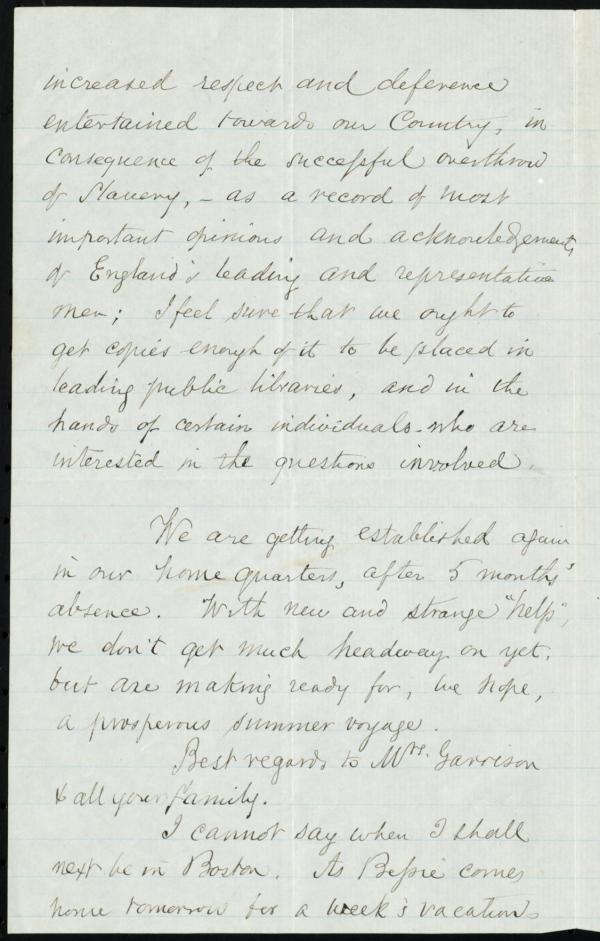 increased respect and deference
entertained towards our Country, in
consequence of the successful overthrow
of Slavery, – as a record of most
important opinions and acknowledgements
of England's leading and representative
men; I feel sure that we ought to
get copies enough of it to be placed in
leading public libraries, and in the
hands of certain individuals who are
interested in the questions involved.
We are getting established again
in our home quarters, after 5 months'
absence. With new and strange "help",
we don't get much headway on yet,
but are making ready for, we hope,
a prosperous summer voyage.
Best regards to Mrs. Garrison
& all your family.
I cannot say when I shall
next be in Boston. As Bessie comes
home tomorrow for a week's vacation